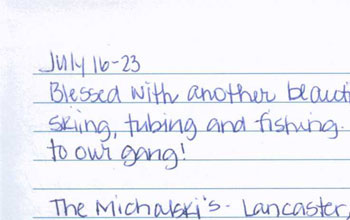 July 16-23
Blessed with another beauti
skiing, tubing and fishing.
to our gang!
The Michalski's - Lancaster,